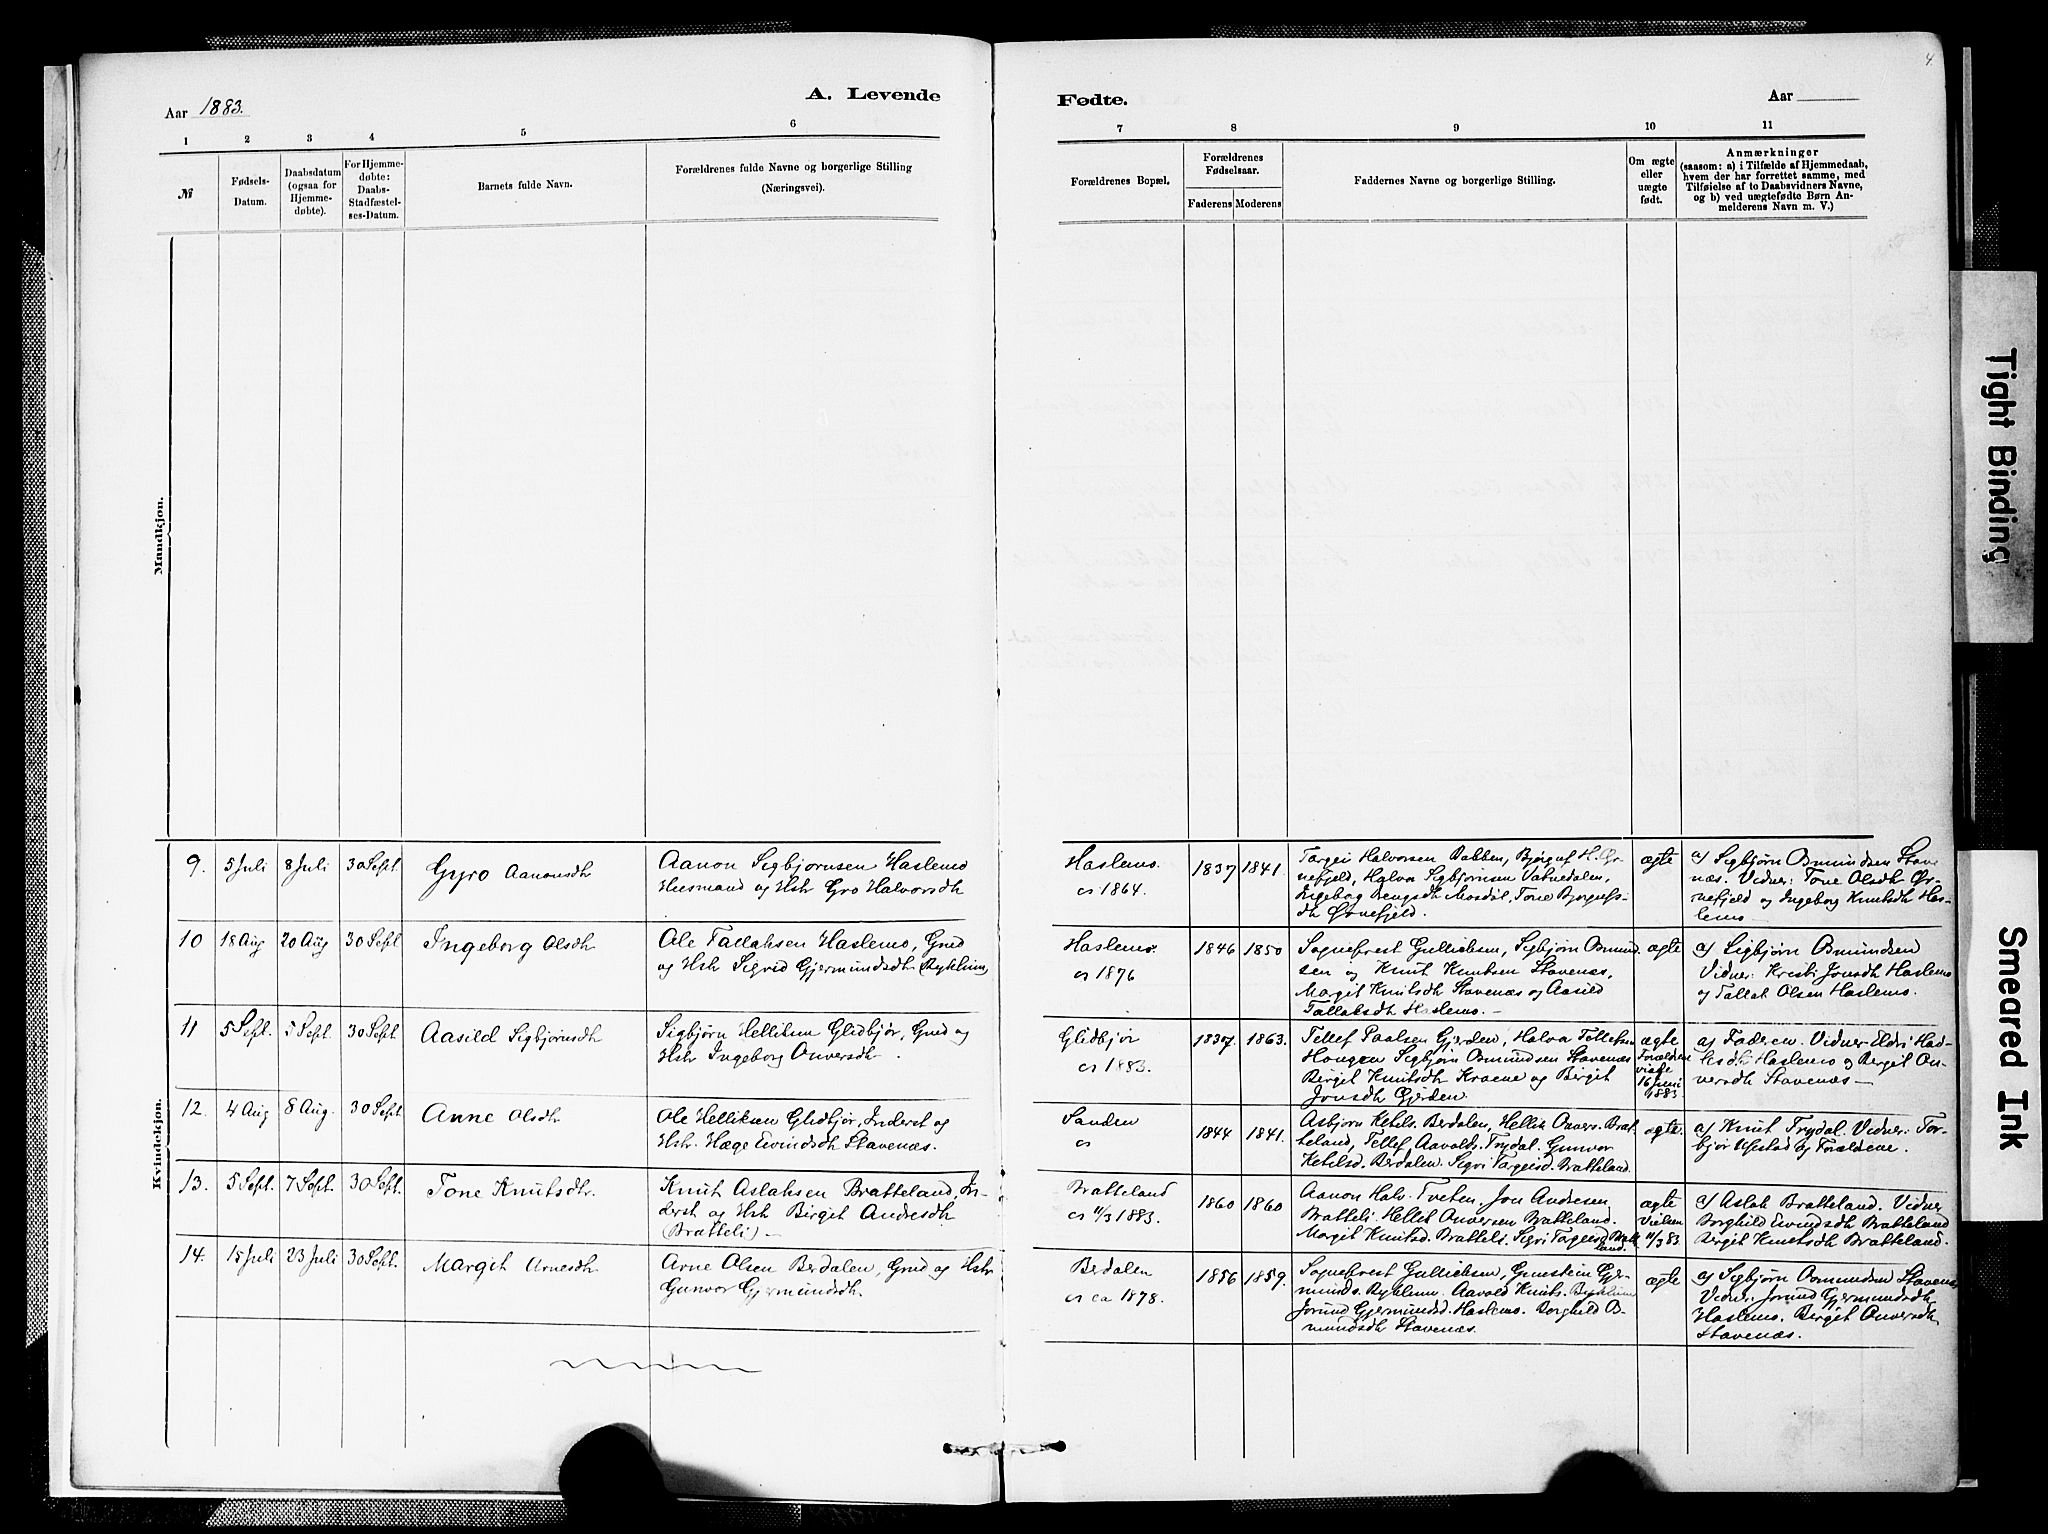 4.
Aar 1883.
A. Levende
Fødte.
Aar
1 2 3 4 5 6 7 8 9 10 11
№
Fødsels-
Datum.
Daabsdatum
(ogsaa for
Hjemme-
døbte).
For Hjemme-
døbte:
Daabs-
Stadfæstel-
ses-Datum.
Barnets fulde Navn.
Forældrenes fulde Navne og borgerlige Stilling
(Næringsvei).
Forældrenes Bopæl.
Forældrenes
Fødselsaar.
Faderens Moderens
Faddernes Navne og borgerlige Stilling.
Om ægte
eller
uægte
født.
Anmærkninger
(saasom: a) i Tilfælde af Hjemmedaab,
hvem der har forrettet samme, med
Tilføielse af to Daabsvidners Navne,
og b) ved uægtefødte Børn An-
melderens Navn m. V.)
Mandkjøn.
Kvindekjøn.
9. 5 Juli 8 Juli 30 Sept. Gyro Aanonsdtr
Aanon Sigbjørnsen Haslemo
Huusmand og Hstr Gro Halvorsdtr
Haslemo.
cs 1864.
1837 1841.
Targei Halvorsen Bakken, Bjørguf H. Ør-
nefjeld, Halvor Sigbjørnsen Vatnedalen,
Ingeborg Bengtsdtr Mosdøl, Tone Bjørgufs-
dtr Ørnefjeld.
ægte
a) Sigbjørn Osmundsen Stave
næs. Vidner: Tone Olsdtr Ør-
nefjeld og Ingeborg Knutsdtr Has-
lemo
10 18 Aug 20 Aug 30 Sept Ingeborg Olsdtr
Ole Tallaksen Haslemo, Gmd
og Hstr Sigrid Gjermundsdtr (Byklum)
Haslemo.
cs 1876
1846 1850
Sogneprest Gullichsen, Sigbjørn Osmund
sen og Knut Knutsen Stavenæs,
Margit Knutsdtr Stavenæs og Aasild
Tallaksdtr Haslemo.
ægte
a) Sigbjørn Osmundsen
Vidner: Kristi Jonsdtr Haslemo
og Tallak Olsen Haslemo.
11 5 Sept. 5 Sept. 30 Sept Aasild Sigbjørnsdtr
Sigbjørn Helliksen Glidbjør, Gmd og
Hstr Ingeborg Onversdtr.
Glidbjør
cs 1883.
1837. 1863.
Tellef Paalsen Gjerden, Halvor Tellefsen
Haugen Sigbjørn Osmundsen Stavenæs
Birgit Knutsdtr Kraene og Birgit
Jonsdtr Gjerden.
ægte
Forældre
viede
16 Juni
1883.
a) Faderen. Vidner Eldri Had-
lesdtr Haslemo og Bergit On-
versdtr Stavenæs
12. 4 Aug 8 Aug. 30 Sept Anne Olsdtr
Ole Helliksen Glidbjør, Inderst og
Hstr. Hæge Eivindsdtr Stavenæs.
Sanden
cs
1844 1841.
Asbjørn Ketils. Berdalen, Hellik Onvers. Brat-
teland, Tellef Aavolds. Trydal. Gunvor
Ketilsd. Berdalen. Sigri Targeisd. Bratteland.
ægte.
a) Knut Trydal. Vidner: Tor-
bjør Ufestad og Forældrene.
13. 5 Sept. 7 Sept. 30 Sept. Tone Knutsdtr.
Knut Aslaksen Bratteland, In-
derst og Hstr Birgit Andresdtr
(Bratteli)
Bratteland
cs 11/3 1883.
1860 1860
Aanon Halv. Tveten, Jon Andresen
Bratteli Hellek Onversen Bratteland.
Margit Knutsd. Bratteli. Sigri Targeisd Bratte
land.
ægte
Vielsen
11/3 83.
a) Aslak Bratteland. Vidner
Borghild Eivindsdtr Bratteland
Bergit Knutsdtr Bratteland.
14. 15 Juli 23 Juli 30 Sept. Margit Arnesdtr
Arne Olsen Berdalen, Gmd og Hstr
Gunvor Gjermundsdtr.
Berdalen
cs ca 1878.
1856 1859.
Sogneprest Gullichsen, Gunstein Gjer-
munds. Byklum. Aavold Knuts. Byklum
Jorund Gjermundsd. Haslemo. Borghild Os-
mundsdtr Stavenæs.
ægte
a) Sigbjørn Osmundsen Stavenæs
Vidner: Jorund Gjermundsdtr
Haslemo. Birgit Onversdtr
Stavenæs.
Tight Binding
Smeared Ink